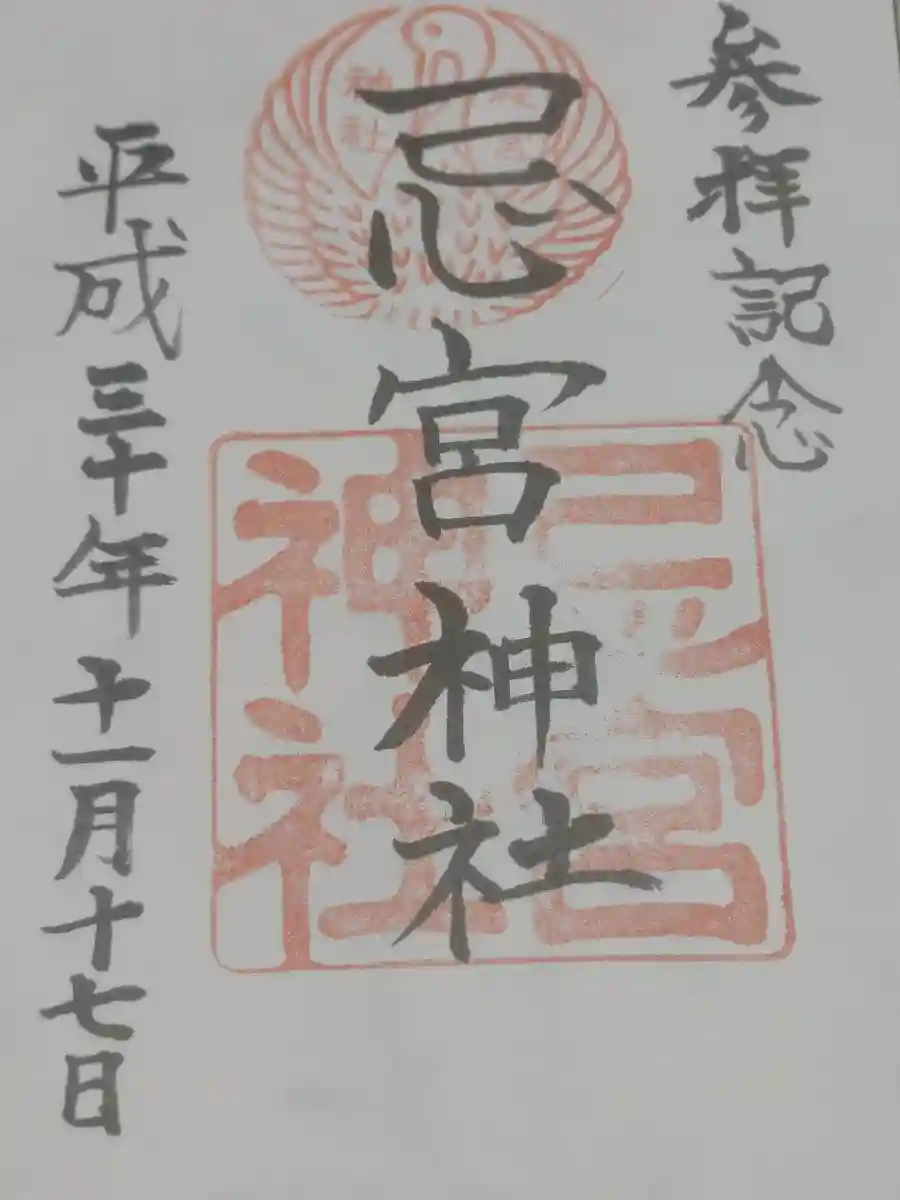 参拝記念
忌宮神社
忌宮神社
忌宮神社
平成三十年十一月十七日